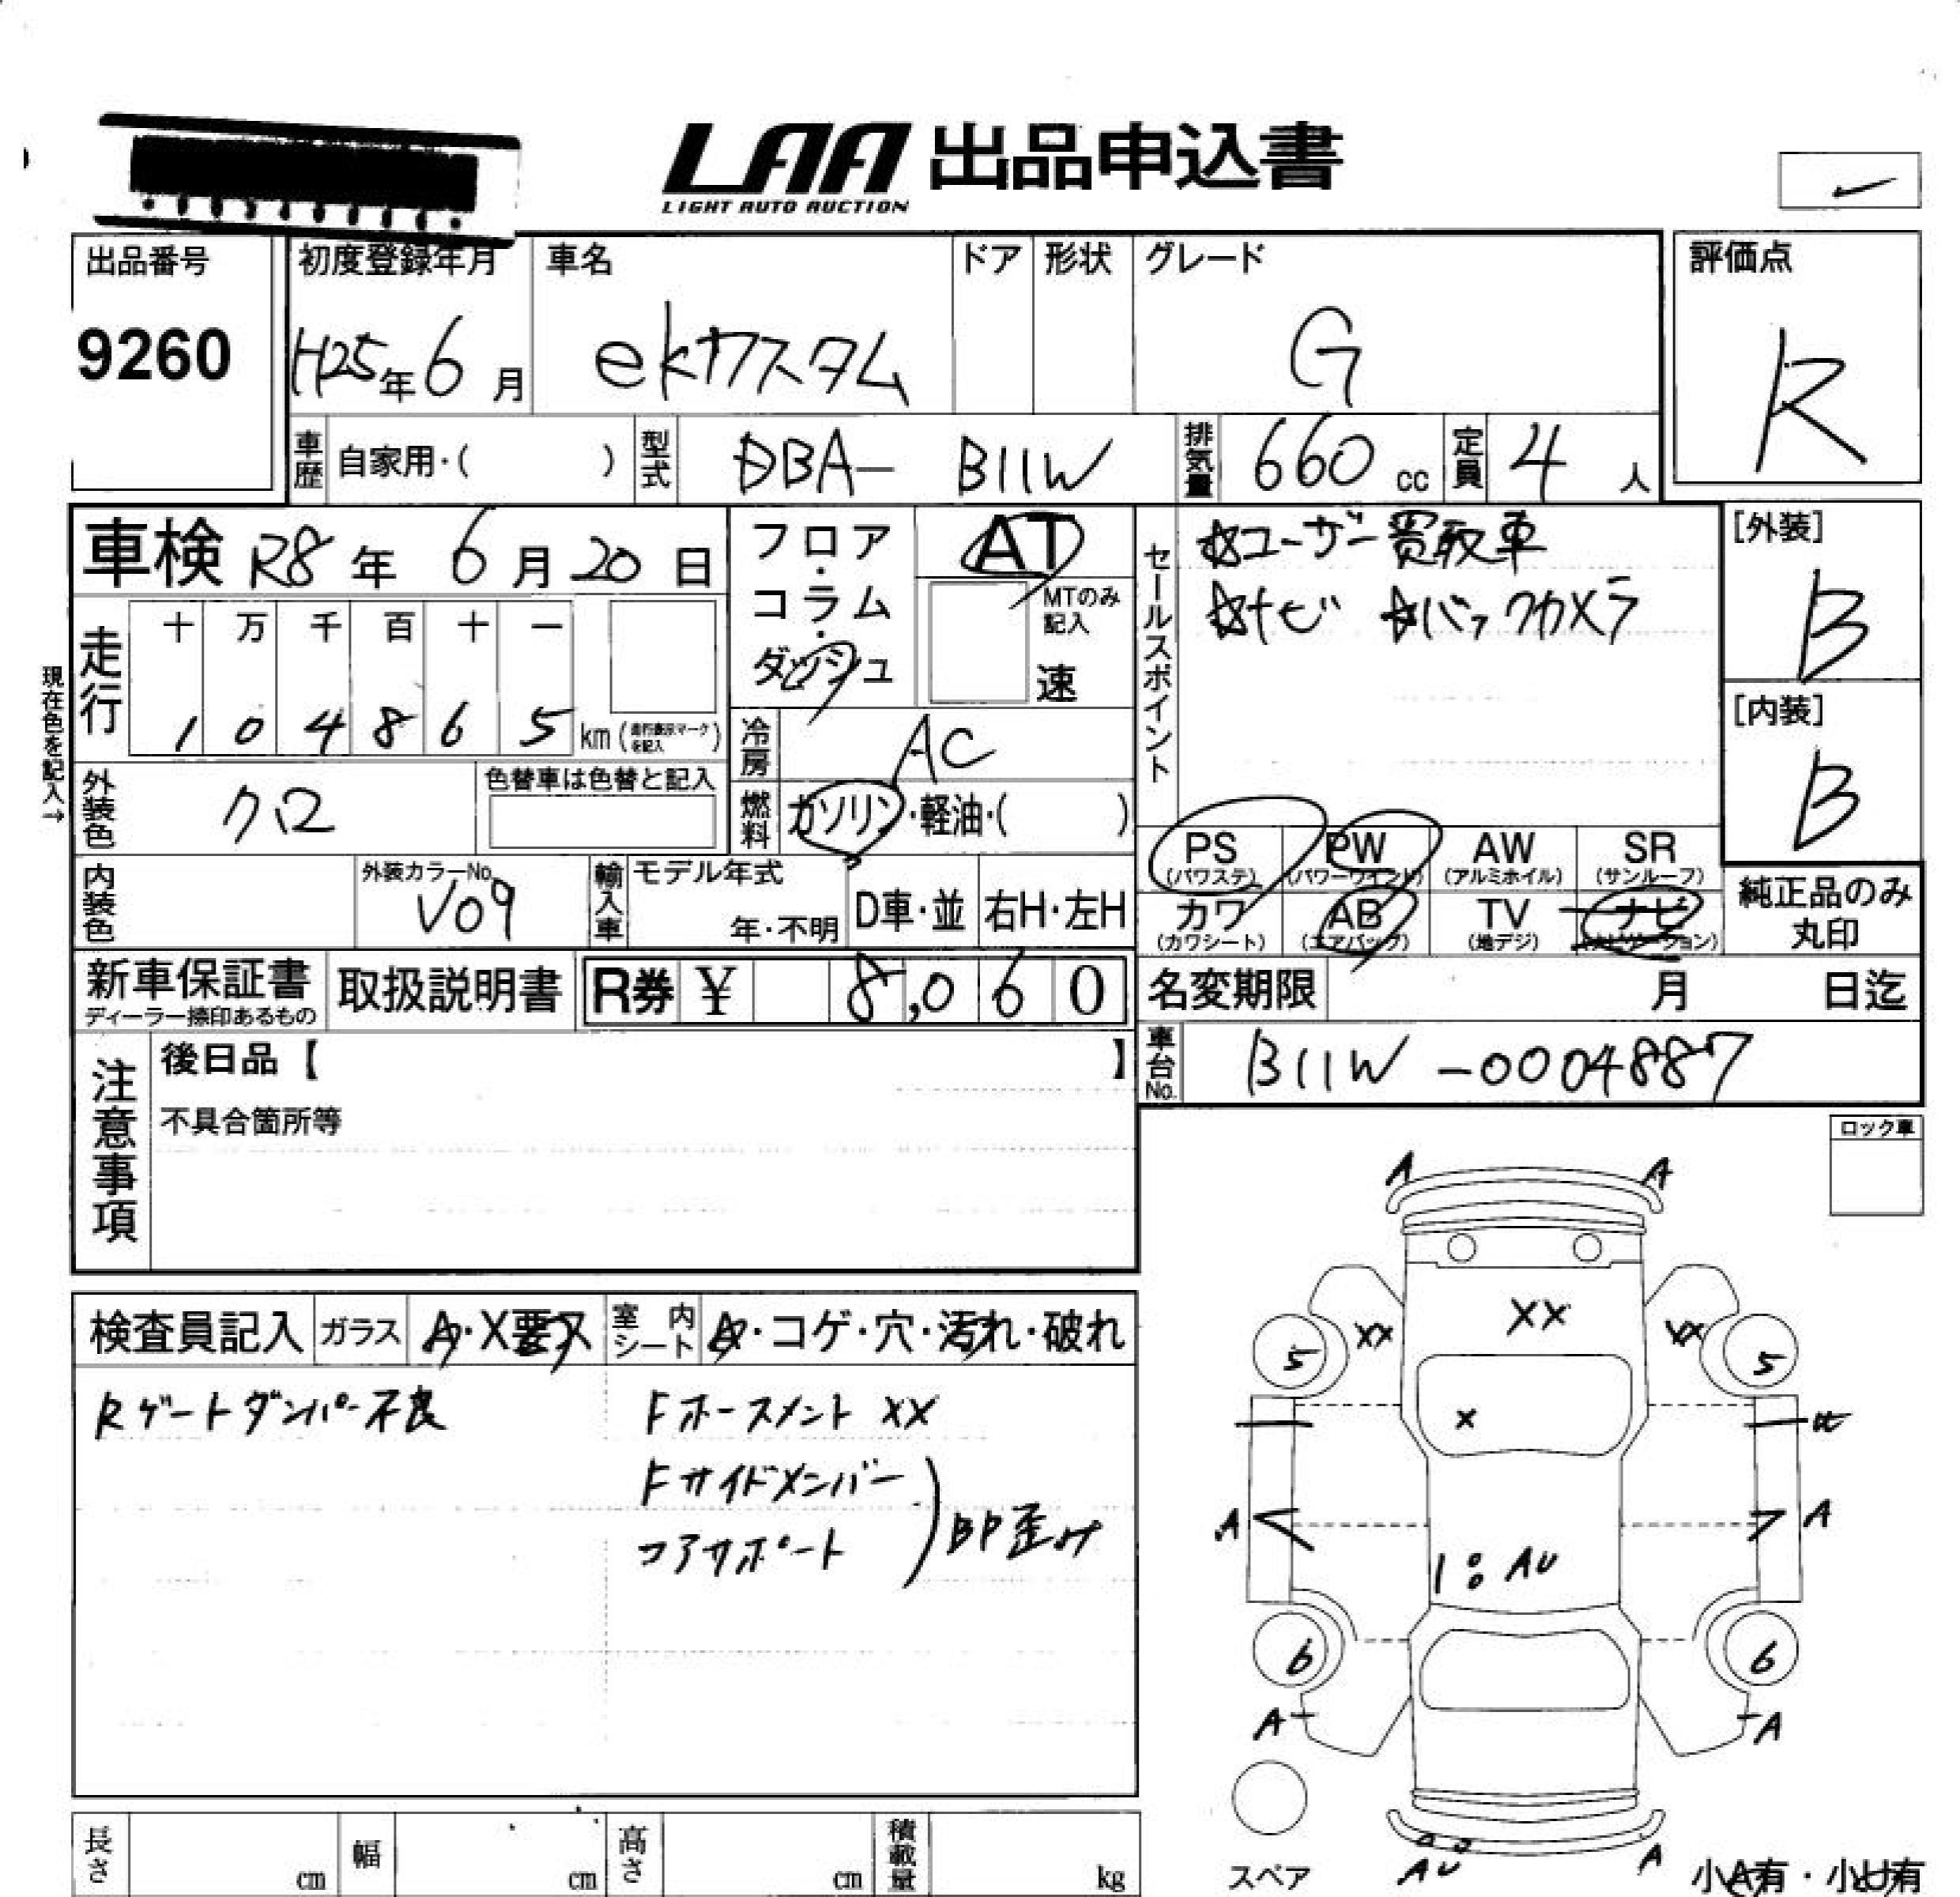 LAA 出品申込書
LIGHT AUTO AUCTION
出品番号
9260
初度登録年月
H25年6月
車名
ekカスタム
ドア
形状
グレード
G
評価点
R
車歴
自家用・( )
型式
DBA- B11W
排気量
660 cc
定員
4 人
車検 R8年 6月 20日
走行
十 万 千 百 十 一
1 0 4 8 6 5 km (走行表示マークを記入)
現在色を記入→
外装色
クロ
色替車は色替と記入
内装色
外装カラーNo.
V09
フロア・コラム・ダッシュ
AT
MTのみ記入
速
冷房
AC
燃料
ガソリン・軽油・( )
輸入車
モデル年式
年・不明
D車・並
右H・左H
セールスポイント
☆ユーザー買取車
☆ナビ ☆バックカメラ
PS
(パワステ)
PW
(パワーウインド)
AW
(アルミホイル)
SR
(サンルーフ)
カワ
(カワシート)
AB
(エアバッグ)
TV
(地デジ)
ナビ
(ナビゲーション)
[外装]
B
[内装]
B
純正品のみ
丸印
新車保証書
ディーラー捺印あるもの
取扱説明書
R券 ¥ 8,060
名変期限 月 日迄
車台No.
B11W-0004887
注意事項
後日品【 】
不具合箇所等
ロック車
検査員記入
ガラス
A・X要ス
室内シート
A・コゲ・穴・汚れ・破れ
Rゲートダンパー不良
Fホースメント XX
Fサイドメンバー
コアサポート
) BP歪み
A A
XX XX XX
5 5
X
A A
1: AU
6 6
A A
AU A
スペア
小A有・小U有
長さ cm
幅 cm
高さ cm
積載量 kg